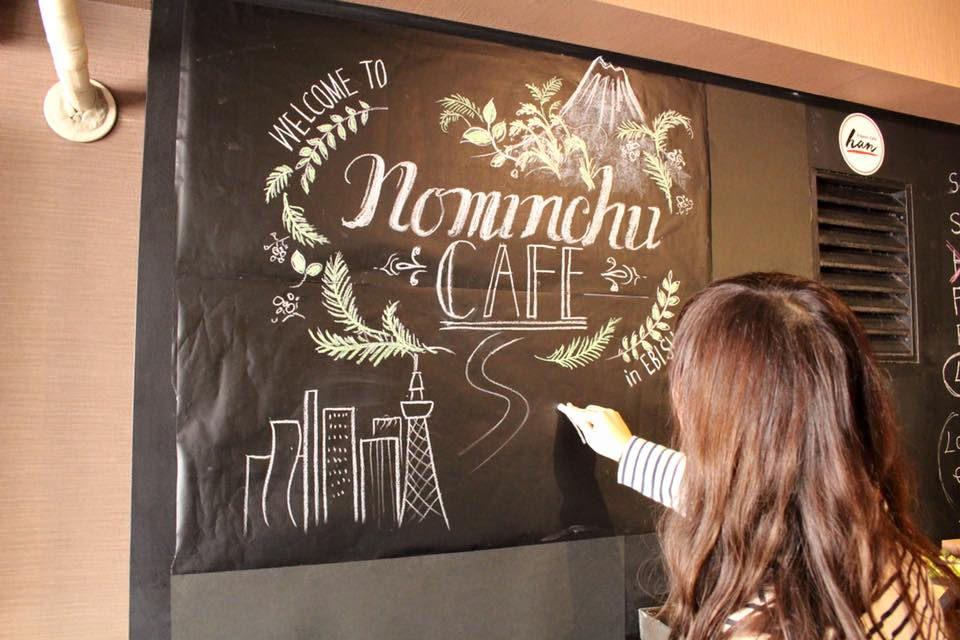 WELCOME TO
Nominchu
CAFE
in
han